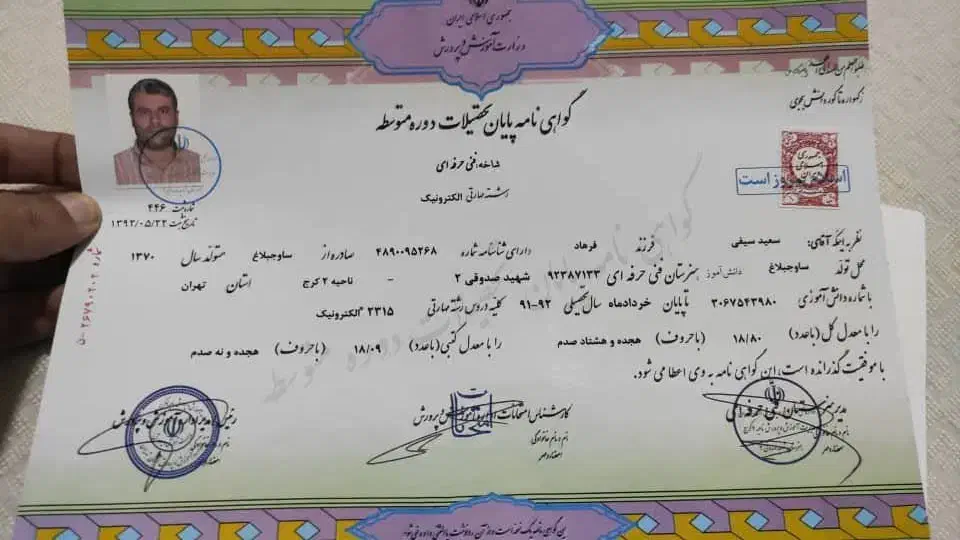 جمهوری اسلامی ایران
وزارت آموزش و پرورش
ز گهواره تا گور دانش بجوی
گواهی نامه پایان تحصیلات دوره متوسطه
شاخه: فنی حرفه ای
رشته مهارتی الکترونیک
جمهوری اسلامی ایران
شماره ثبت ۴۴۶
تاریخ ثبت ۱۳۹۲/۰۵/۲۲
نظر به اینکه آقای: سعید سیفی فرزند فرهاد دارای شناسنامه شماره ۴۸۹۰۰۹۵۲۶۸ صادره از ساوجبلاغ متولد سال ۱۳۷۰
محل تولد ساوجبلاغ دانش آموز هنرستان فنی حرفه ای ۹۲۳۸۷۱۳۳ شهید صدوقی ۲ - ناحیه ۲ کرج استان تهران
با شماره دانش آموزی ۳۰۶۷۵۴۳۹۸۰ تا پایان خردادماه سال تحصیلی ۹۲-۹۱ کلیه دروس رشته مهارتی ۲۳۱۵ الکترونیک
را با معدل کل (با عدد) ۱۸/۸۰ (با حروف) هجده و هشتاد صدم را با معدل کتبی (با عدد) ۱۸/۰۹ (با حروف) هجده و نه صدم
با موفقیت گذرانده است، این گواهی نامه به وی اعطا می شود.
گواهی نامه پایان تحصیلات دوره متوسطه
مدیر هنرستان فنی حرفه ای
نام و نام خانوادگی
امضاء و مهر
کارشناس امتحانات اداره آموزش و پرورش
نام و نام خانوادگی
امضاء و مهر
رئیس / مدیر اداره آموزش و پرورش
نام و نام خانوادگی
امضاء و مهر